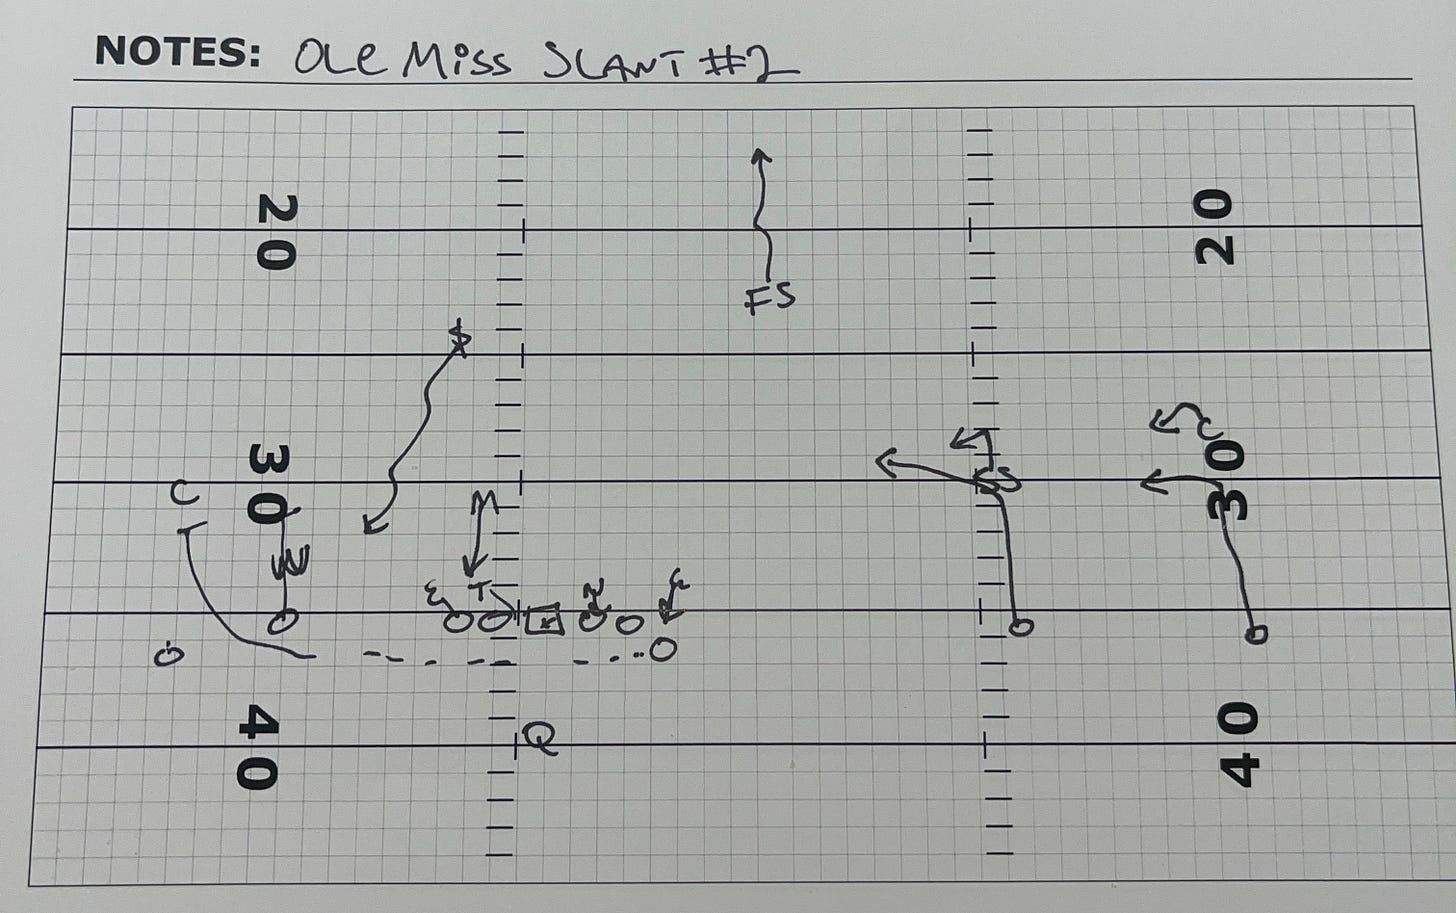 NOTES: OLE MISS SLANT #2
20 20
FS
$
30 30
C C
M
E T N
40 40
Q